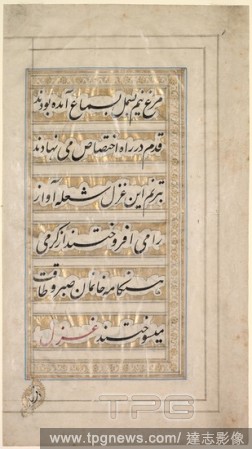 مرغ نیم بسمل بسماع آمده بودند
قدم در راه اختصاص می نهادند
بترنم این غزل شعله آواز
را می افروختند از گرمی
هنگامه خانمان صبر و طاقت
میسوختند غزل
TPG
www.tpgnews.com/ 達志影像